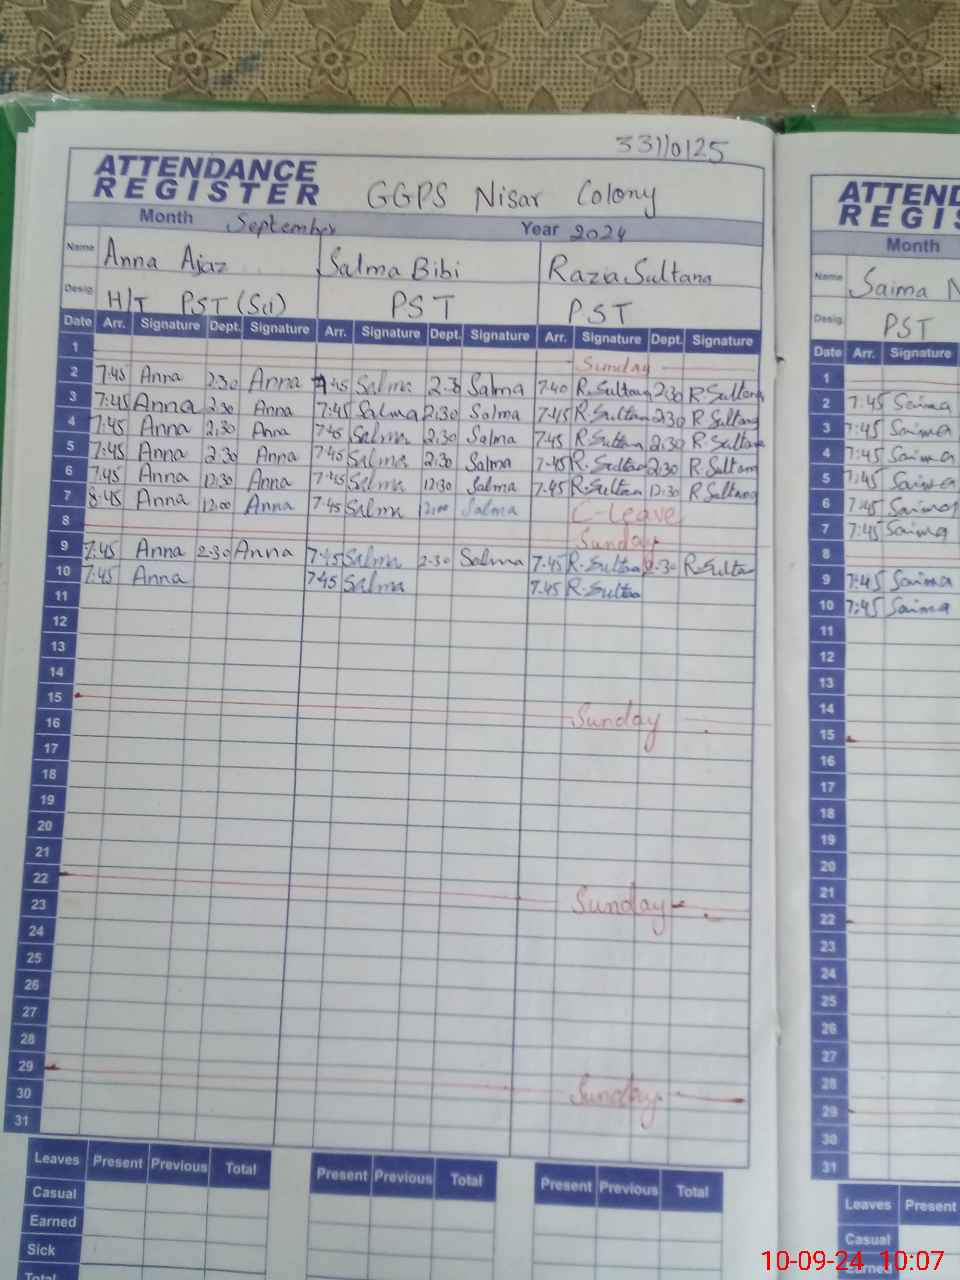 33110125
ATTENDANCE
REGISTER GGPS Nisar Colony
Month September Year 2024
Name Anna Ajaz Salma Bibi Razia Sultana
Desig. H/T PST (Sci) PST PST
Date Arr. Signature Dept. Signature Arr. Signature Dept. Signature Arr. Signature Dept. Signature
1 Sunday
2 7:45 Anna 2:30 Anna 7:45 Salma 2:30 Salma 7:40 R.Sultana 2:30 R.Sultana
3 7:45 Anna 2:30 Anna 7:45 Salma 2:30 Salma 7:45 R.Sultana 2:30 R.Sultana
4 7:45 Anna 2:30 Anna 7:45 Salma 2:30 Salma 7:45 R.Sultana 2:30 R.Sultana
5 7:45 Anna 2:30 Anna 7:45 Salma 2:30 Salma 7:45 R.Sultana 2:30 R.Sultana
6 7:45 Anna 12:30 Anna 7:45 Salma 12:30 Salma 7:45 R.Sultana 12:30 R.Sultana
7 8:45 Anna 12:00 Anna 7:45 Salma 12:00 Salma C-Leave
8 Sunday
9 7:45 Anna 2:30 Anna 7:45 Salma 2:30 Salma 7:45 R.Sultana 2:30 R.Sultana
10 7:45 Anna 7:45 Salma 7:45 R.Sultana
11
12
13
14
15 Sunday
16
17
18
19
20
21
22 Sunday
23
24
25
26
27
28
29 Sunday
30
31
Leaves Present Previous Total Present Previous Total Present Previous Total
Casual
Earned
Sick
Total
ATTEND
REGIS
Month
Name Saima N
Desig. PST
Date Arr. Signature
1
2 7:45 Saima
3 7:45 Saima
4 7:45 Saima
5 7:45 Saima
6 7:45 Saima
7 7:45 Saima
8
9 7:45 Saima
10 7:45 Saima
11
12
13
14
15
16
17
18
19
20
21
22
23
24
25
26
27
28
29
30
31
Leaves Present
Casual
Earned
10-09-24 10:07